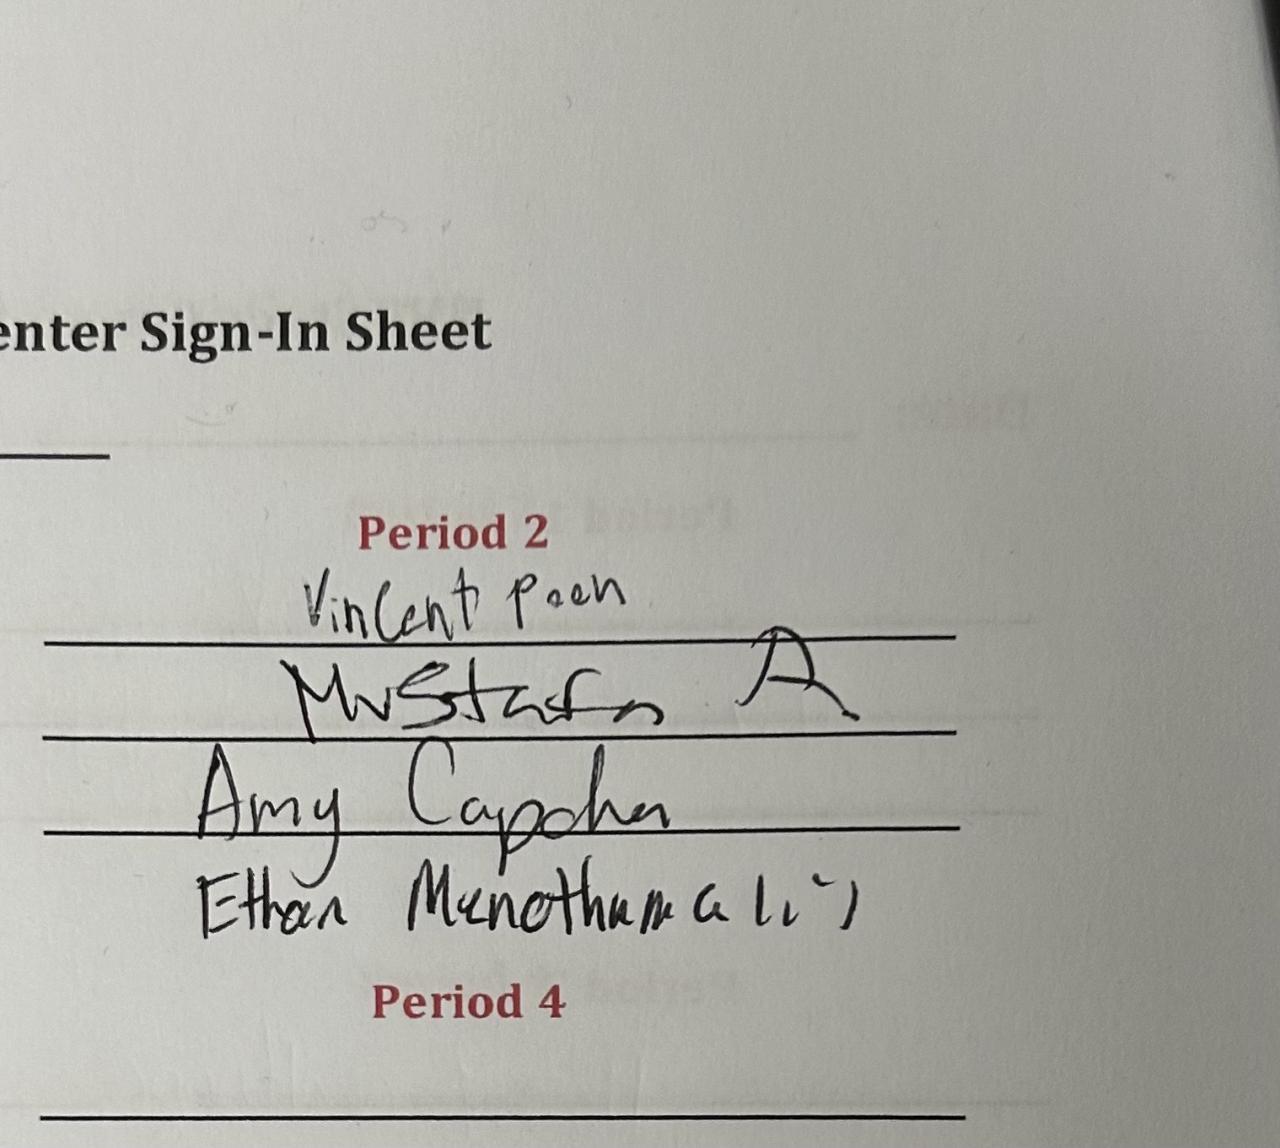 enter Sign-In Sheet
Period 2
Vincent Poen
Mustafa A
Amy Capcha
Ethan
Period 4